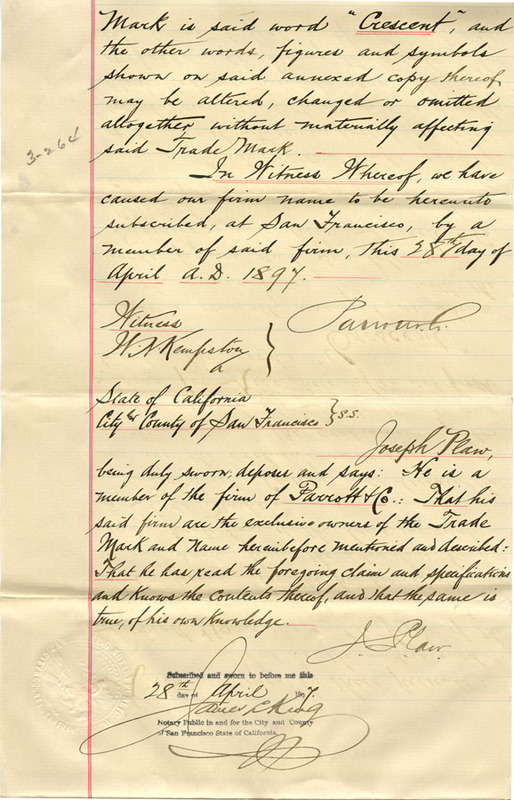 Mark is said word "Crescent", and
the other words, figures and symbols
shown on said annexed copy thereof
may be altered, changed or omitted
altogether without materially affecting
said Trade Mark.
3-264
In Witness Whereof, we have
caused our firm name to be hereunto
subscribed, at San Francisco, by a
member of said firm, this 28th day of
April A.D. 1897.
Witness
W. N. Kempston
State of California
City & County of San Francisco } S.S.
Joseph Plaw,
being duly sworn, deposes and says: He is a
member of the firm of Parrott & Co.: That his
said firm are the exclusive owners of the Trade
Mark and Name hereinbefore mentioned and described:
That he has read the foregoing claim and specifications
and knows the contents thereof, and that the same is
true, of his own knowledge.
J. Plaw.
Subscribed and sworn to before me this
28th day of April 1897.
James L. King
Notary Public in and for the City and County
of San Francisco State of California.